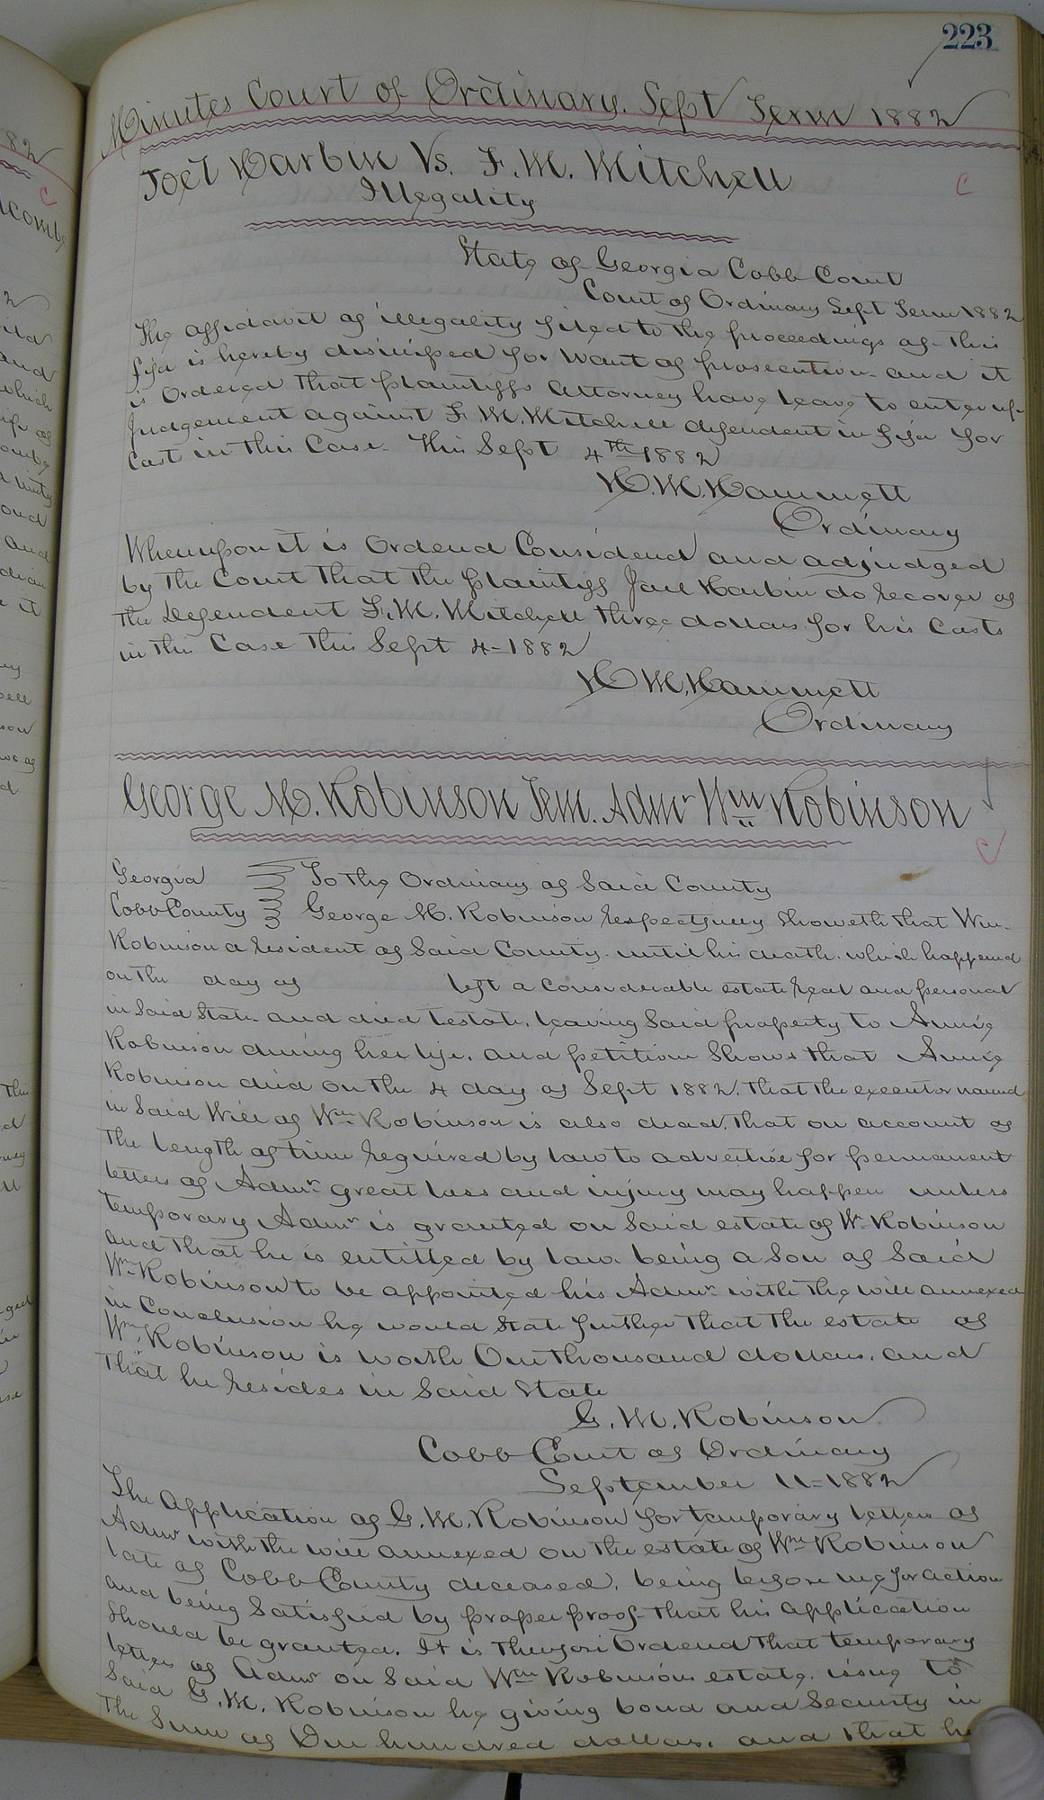 223
Minutes Court of Ordinary. Sept Term 1882
Joel Harbin Vs. F. M. Mitchell
Illegality
State of Georgia Cobb Court
Court of Ordinary Sept Term 1882
The affidavit of illegality filed to the proceedings of this
fifa is hereby dismissed for want of prosecution and it
is Ordered that plaintiffs Attorney have leave to enter up
Judgement against F. M. Mitchell defendent in fifa for
Cost in this Case. This Sept 4th 1882
H. M. Hammett
Ordinary
Whereupon it is Ordered Considered and adjudged
by the Court that the plaintiff Joel Harbin do recover of
the defendent F. M. Mitchell three dollars for his Costs
in this Case This Sept 4-1882
H M. Hammett
Ordinary
George M. Robinson Tem. Admr Wm Robinson
Georgia To the Ordinary of Said County
Cobb County George M. Robinson respectfully Showeth that Wm
Robinson a resident of Said County until his death, which happened
on the day of left a considerable estate real and personal
in Said State and died testate, leaving Said property to Annie
Robinson during her life, and petition Shows that Annie
Robinson died on the 4 day of Sept 1882, that the executor named
in Said Will of Wm Robinson is also dead, that on account of
the length of time required by law to advertise for permanent
letters of Admr. great loss and injury may happen unless
temporary Admr is granted on Said estate of Wm Robinson
and that he is entitled by law being a Son of Said
Wm Robinson to be appointed his Admr. with the will annexed
in Conclusion he would State further that the estate of
Wm Robinson is worth One thousand dollars, and
that he resides in Said State
G. M. Robinson
Cobb Court of Ordinary
September 11-1882
The Application of G. M. Robinson for temporary letters of
Admr with the will annexed on the estate of Wm Robinson
late of Cobb County deceased, being before me for action
and being Satisfied by proper proof that his application
Should be granted. It is therefore Ordered that temporary
letters of Admr on Said Wm Robinson estate, issue to
Said G. M. Robinson he giving bond and Security in
the Sum of One hundred dollars, and that he